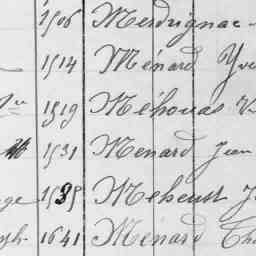 1506 Merdrignac
1514 Ménard Yve
1519 Méhouas V
1531 Menard Jean
ge 1535 Meheust J
ph. 1641 Ménard Th